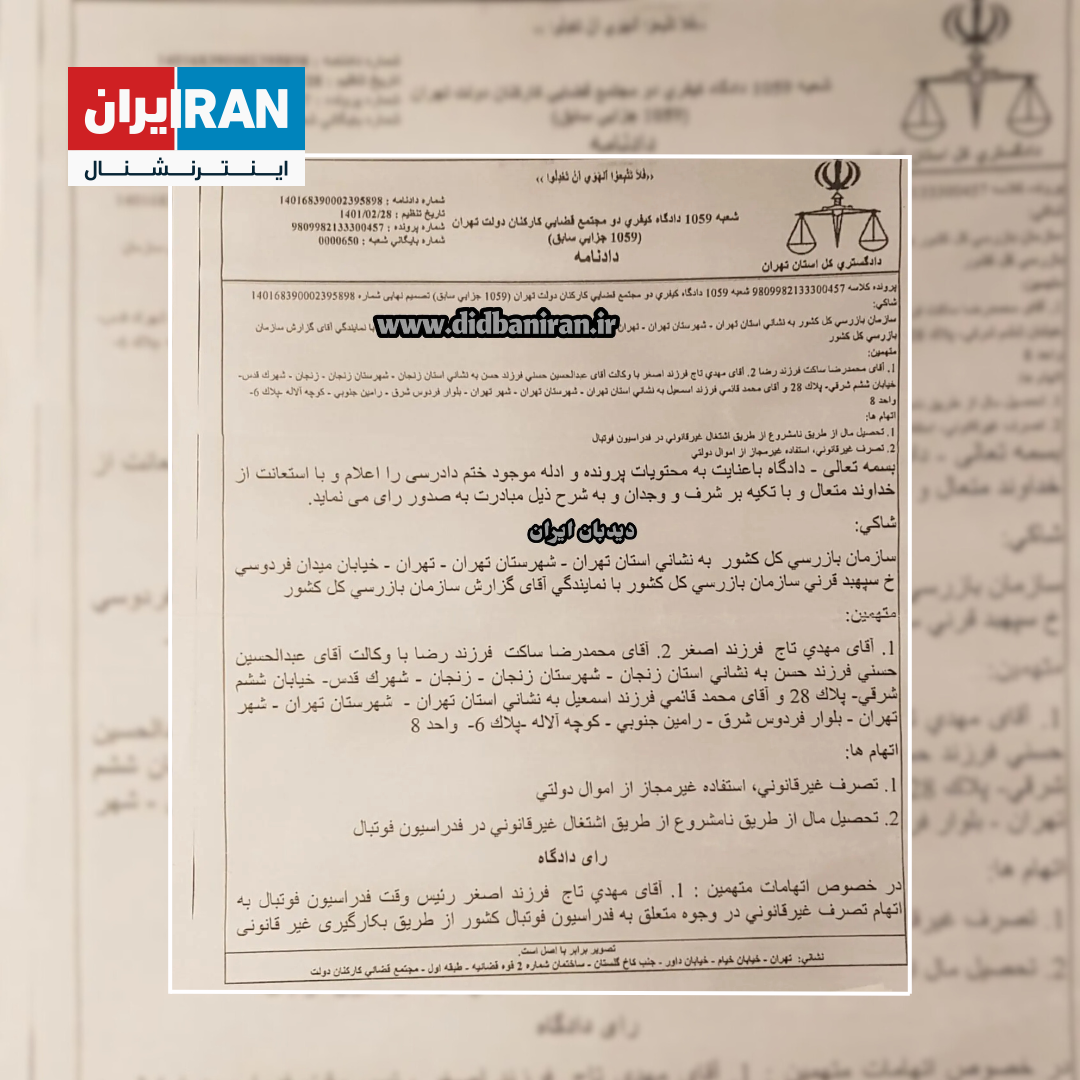 ایران IRAN
اینترنشنال
«فَلاَ تَتَّبِعُوا الْهَوَي أَنْ تَعْدِلُوا»
شماره دادنامه : 140168390002395898
تاریخ تنظیم : 1401/02/28
شماره پرونده : 9809982133300457
شماره بایگاني شعبه : 0000650
شعبه 1059 دادگاه كيفري دو مجتمع قضايي كاركنان دولت تهران
(1059 جزايي سابق)
دادنامه
دادگستري كل استان تهران
پرونده كلاسه 9809982133300457 شعبه 1059 دادگاه كيفري دو مجتمع قضايي كاركنان دولت تهران (1059 جزايي سابق) تصميم نهايي شماره 140168390002395898
شاكي:
سازمان بازرسي كل كشور به نشاني استان تهران - شهرستان تهران - تهران با نمايندگي آقاي گزارش سازمان
www.didbaniran.ir
بازرسي كل كشور
متهمين:
1. آقاي محمدرضا ساكت فرزند رضا 2. آقاي مهدي تاج فرزند اصغر با وكالت آقاي عبدالحسين حسني فرزند حسن به نشاني استان زنجان - شهرستان زنجان - زنجان - شهرك قدس-
خيابان ششم شرقي- پلاك 28 و آقاي محمد قائمي فرزند اسمعيل به نشاني استان تهران - شهرستان تهران - شهر تهران - بلوار فردوس شرق - رامين جنوبي - كوچه آلاله -پلاك 6-
واحد 8
اتهام ها:
1. تحصيل مال از طريق نامشروع از طريق اشتغال غيرقانوني در فدراسيون فوتبال
2. تصرف غيرقانوني، استفاده غيرمجاز از اموال دولتي
بسمه تعالی - دادگاه باعنایت به محتویات پرونده و ادله موجود ختم دادرسی را اعلام و با استعانت از
خداوند متعال و با تکیه بر شرف و وجدان و به شرح ذیل مبادرت به صدور رای می نماید.
دیدبان ایران
شاكي:
سازمان بازرسي كل كشور به نشاني استان تهران - شهرستان تهران - تهران - خيابان ميدان فردوسي
خ سپهبد قرني سازمان بازرسي كل كشور با نمايندگي آقاي گزارش سازمان بازرسي كل كشور
متهمين:
1. آقاي مهدي تاج فرزند اصغر 2. آقاي محمدرضا ساكت فرزند رضا با وكالت آقاي عبدالحسين
حسني فرزند حسن به نشاني استان زنجان - شهرستان زنجان - زنجان - شهرك قدس- خيابان ششم
شرقي- پلاك 28 و آقاي محمد قائمي فرزند اسمعيل به نشاني استان تهران - شهرستان تهران - شهر
تهران - بلوار فردوس شرق - رامين جنوبي - كوچه آلاله -پلاك 6- واحد 8
اتهام ها:
1. تصرف غيرقانوني، استفاده غيرمجاز از اموال دولتي
2. تحصيل مال از طريق نامشروع از طريق اشتغال غيرقانوني در فدراسيون فوتبال
رای دادگاه
در خصوص اتهامات متهمين : 1. آقاي مهدي تاج فرزند اصغر رئیس وقت فدراسیون فوتبال به
اتهام تصرف غیرقانوني در وجوه متعلق به فدراسیون فوتبال کشور از طریق بکارگیری غیر قانونی
تصوير برابر با اصل است.
نشاني: تهران - خيابان خيام - خيابان داور - جنب كاخ گلستان - ساختمان شماره 2 قوه قضائيه - طبقه اول - مجتمع قضائي كاركنان دولت